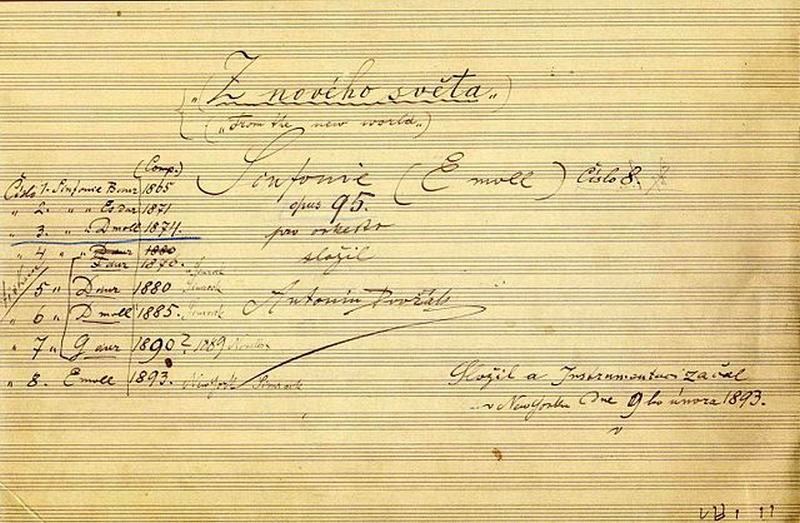 „Z nového světa„
(„From the new world„)
Sinfonie (E moll) Číslo 8.
opus 95.
pro orkestr
složil
Antonín Dvořák
(Comp.)
Číslo 1. Sinfonie B dur 1865
„ 2. „ „ Es dur 1871
„ 3. „ „ D moll 1874.
„ 4 „ „ D dur 1880
F dur 1870. Simrock
„ 5 „ D dur 1880 Simrock
„ 6 „ D moll 1885. Simrock
„ 7 „ G dur 1890? 1889 Novello
„ 8. E moll 1893. New York Simrock
Složil a Instrumentaci začal
v New Yorku dne 9ho února 1893.